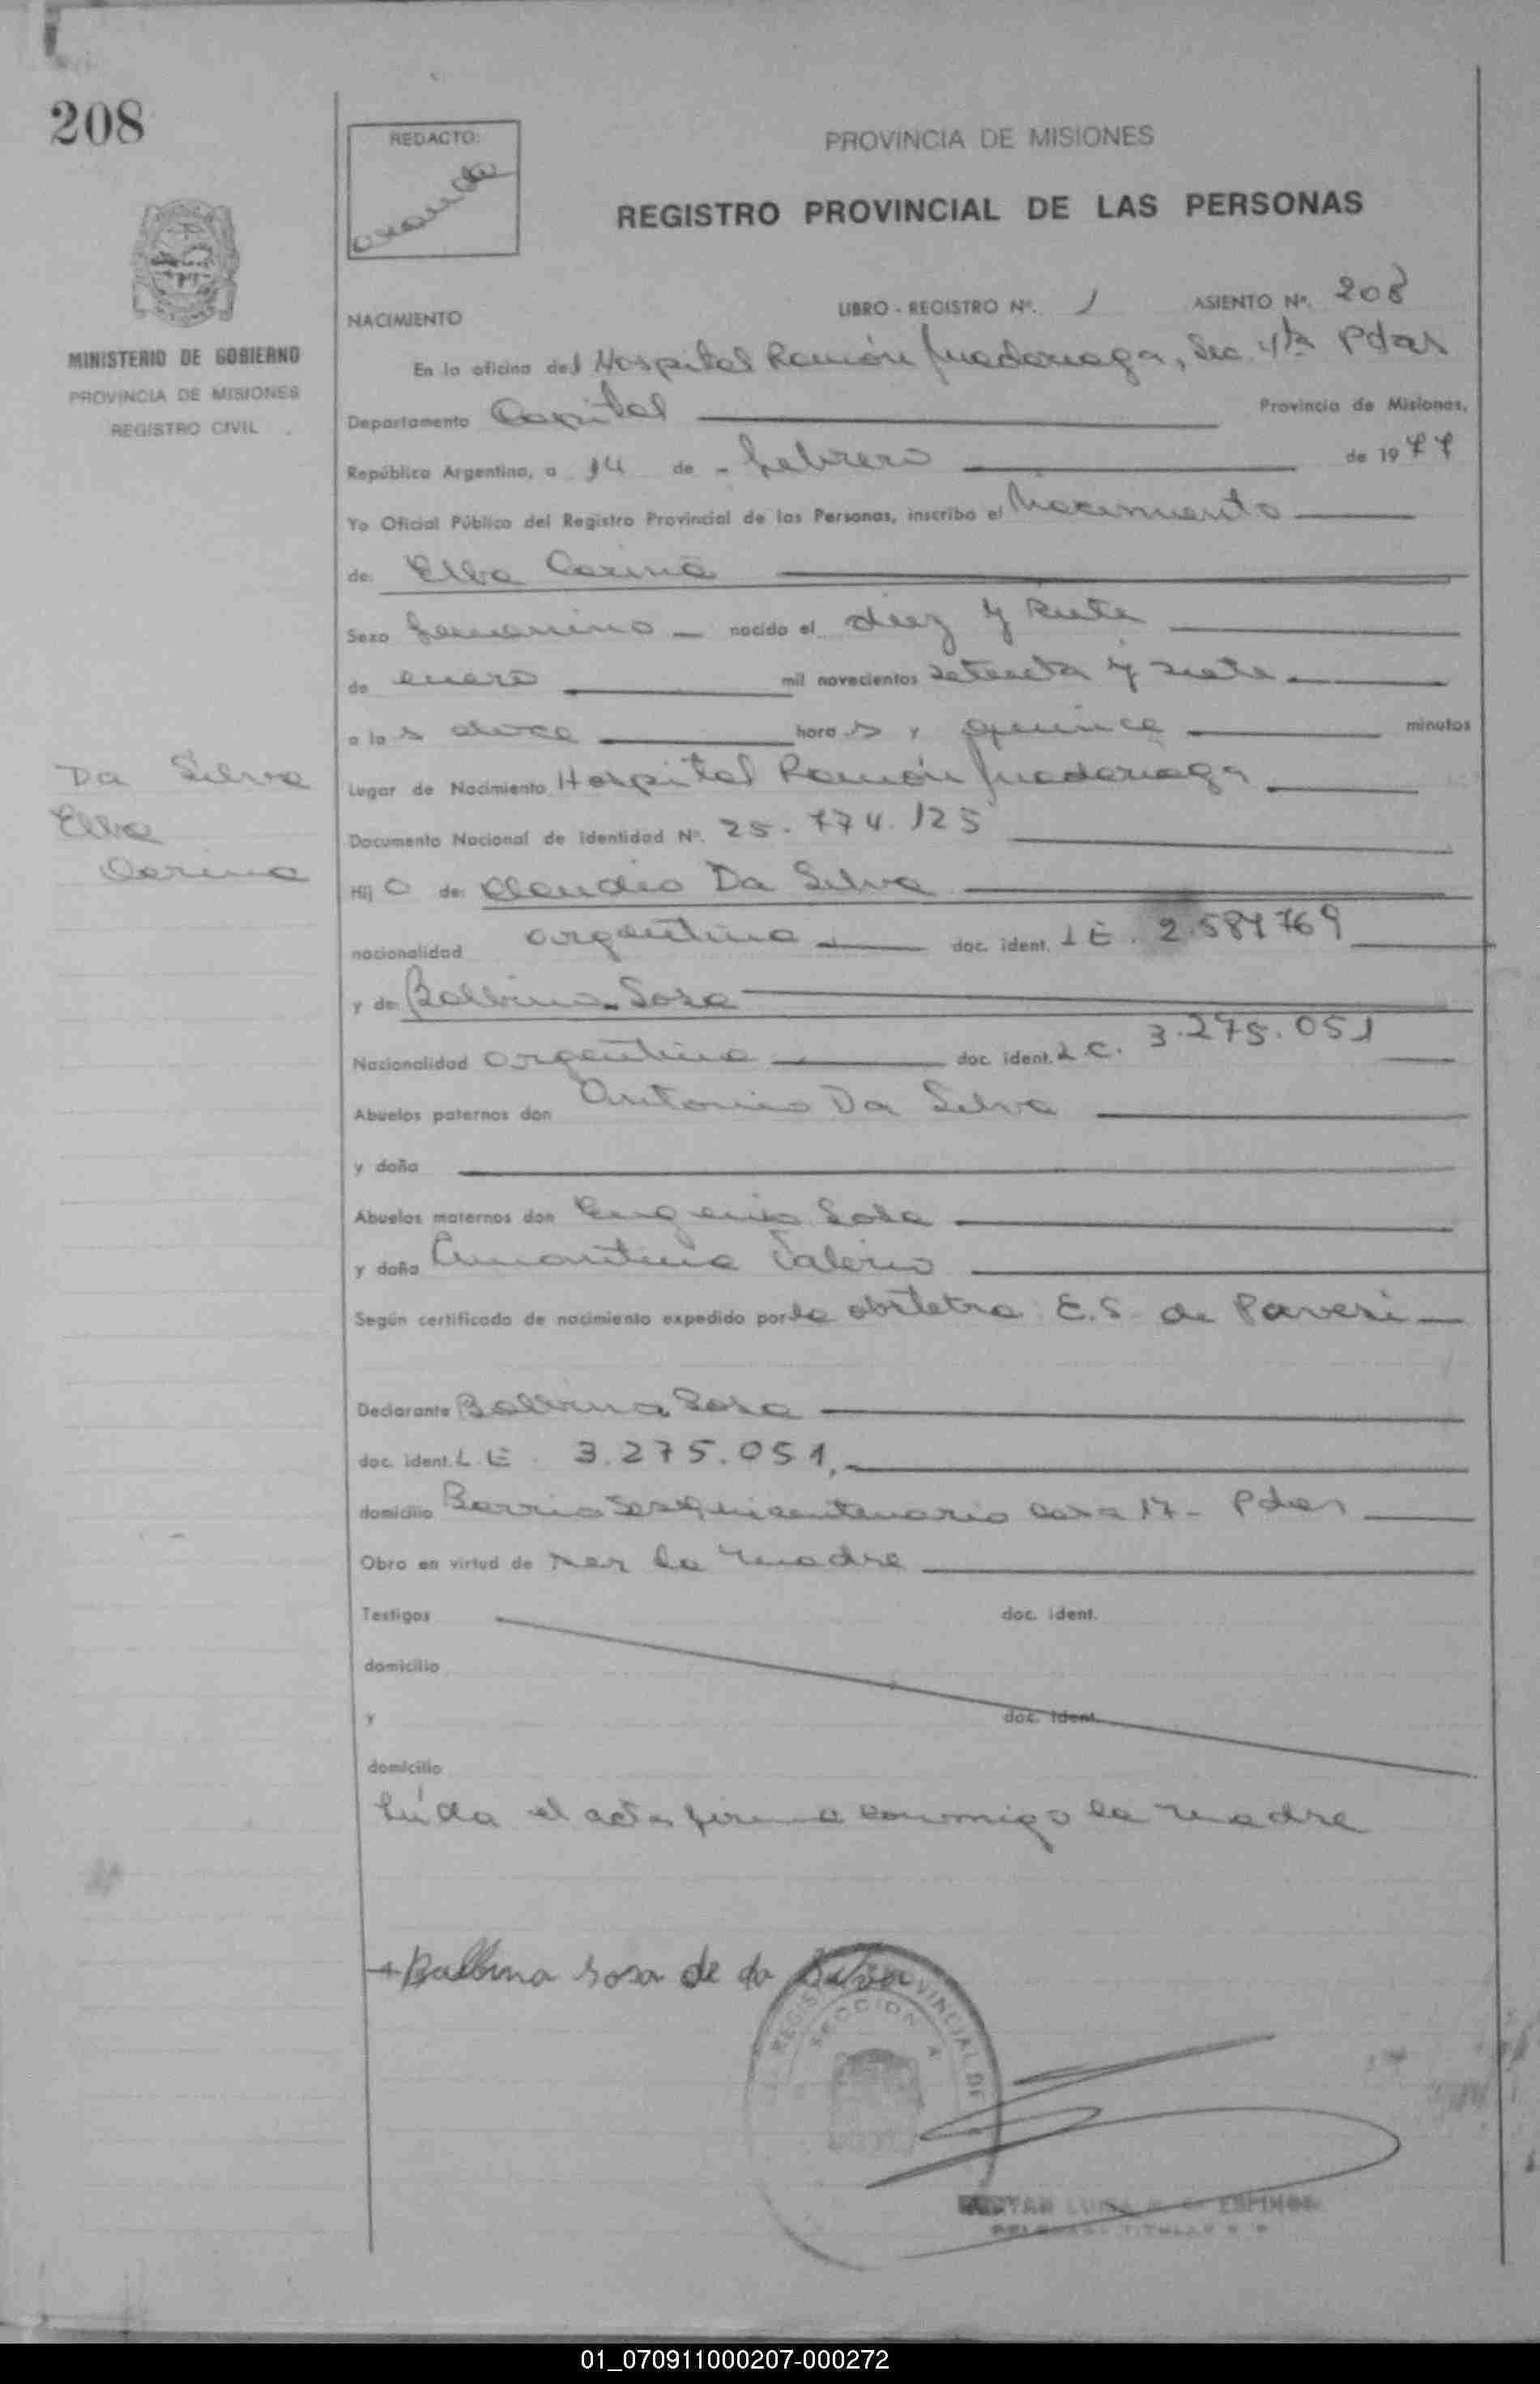 208
REDACTO:
PROVINCIA DE MISIONES
REGISTRO PROVINCIAL DE LAS PERSONAS
MINISTERIO DE GOBIERNO
PROVINCIA DE MISIONES
REGISTRO CIVIL
NACIMIENTO LIBRO - REGISTRO Nº. 1 ASIENTO Nº. 208
En la oficina del Hospital Ramón Madariaga, Sec. 4ta Pdas
Departamento Capital Provincia de Misiones,
República Argentina, a 14 de - febrero de 1977
Yo Oficial Público del Registro Provincial de las Personas, inscribo el Nacimiento
de: Elba Carina
Sexo femenino - nacido el diez y siete
de enero mil novecientos setenta y siete
a las doce horas y quince minutos
Da Silva
Elba
Carina
Lugar de Nacimiento Hospital Ramón Madariaga
Documento Nacional de Identidad Nº. 25.774.125
Hij a de: Claudio Da Silva
nacionalidad argentina doc. ident. LE. 2.584769
y de: Balbina Sosa
Nacionalidad argentina doc. ident. L C. 3.275.051
Abuelos paternos don Antonio Da Silva
y doña
Abuelos maternos don Eugenio Sosa
y doña Amantina Valerio
Según certificado de nacimiento expedido por la obstetra E.S. de Paveri
Declarante Balbina Sosa
doc. ident. L.E. 3.275.051,
domicilio Barrio Sesquicentenario casa 17 - Pdas
Obra en virtud de ser la madre
Testigos doc. ident.
domicilio
y doc. ident.
domicilio
Leída el acta firma conmigo la madre
Balbina Sosa de da Silva
REGISTRO PROVINCIAL DE
SECCION
01_070911000207-000272